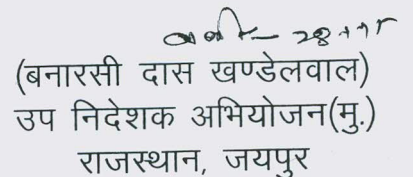 (बनारसी दास खण्डेलवाल)
उप निदेशक अभियोजन(मु.)
राजस्थान, जयपुर